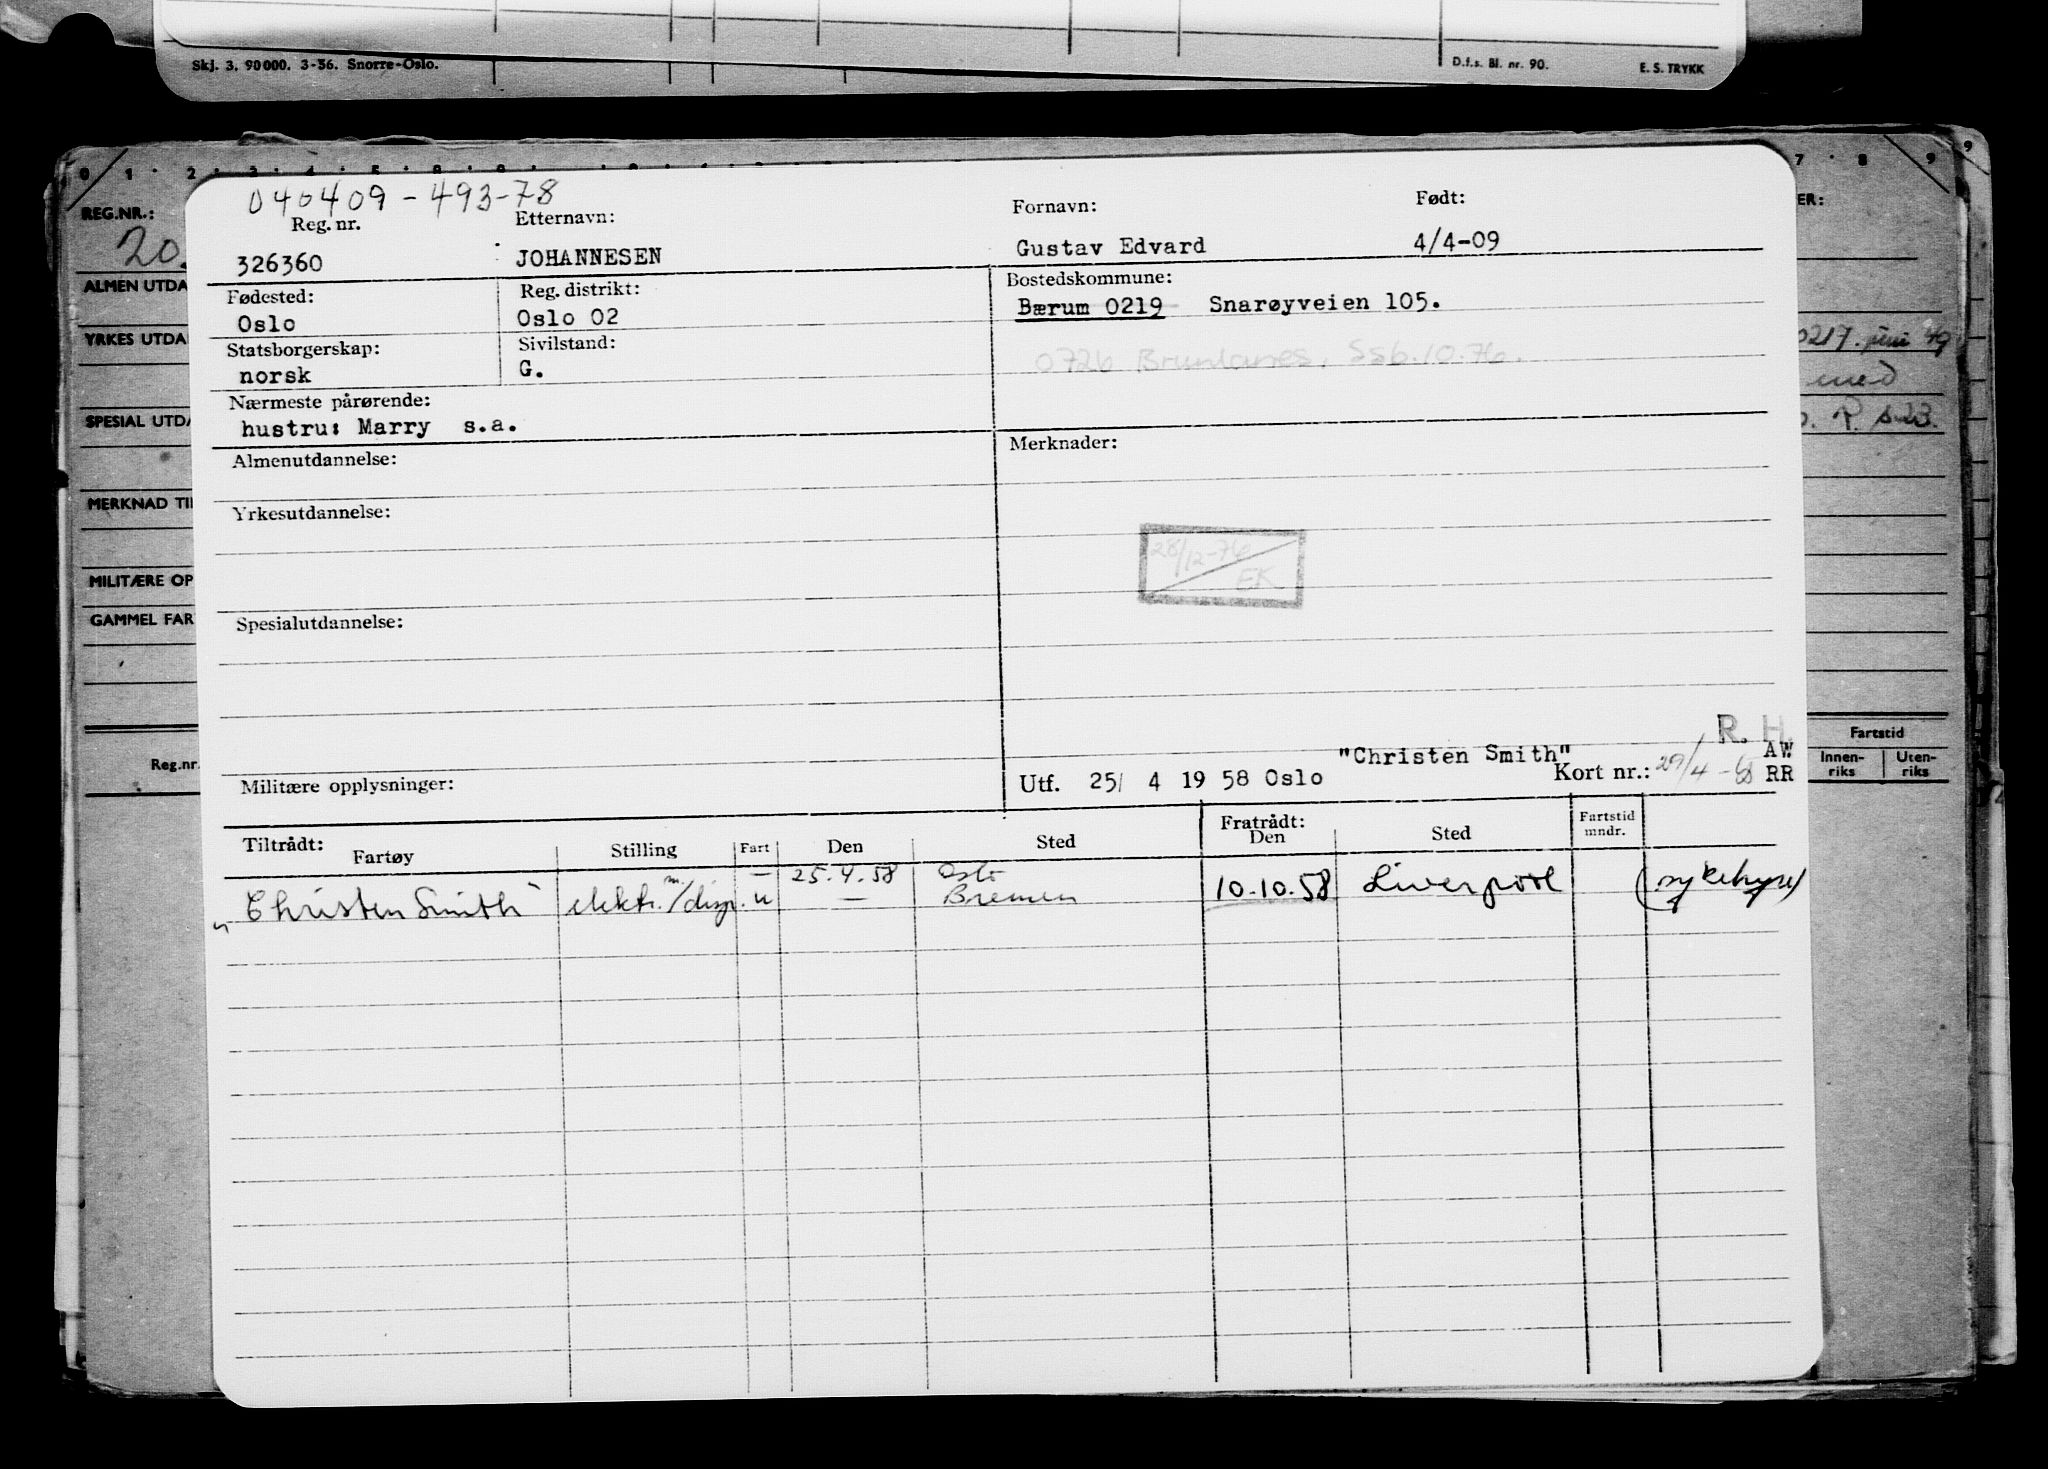 Skj. 3. 90000. 3-56. Snorre-Oslo.
D.f.s. Bl. nr. 90.
E. S. TRYKK
REG.NR.:
20.
ALMEN UTDA
YRKES UTDA
SPESIAL UTDA
MERKNAD TIL
MILITÆRE OP
GAMMEL FAR
Reg.nr.
040409-493-78
Reg. nr.
Etternavn:
Fornavn:
Født:
326360
JOHANNESEN
Gustav Edvard
4/4-09
Fødested:
Reg. distrikt:
Bostedskommune:
Oslo
Oslo 02
Bærum 0219 Snarøyveien 105.
Statsborgerskap:
Sivilstand:
0726 Brunlanes. Ssb.10.76.
norsk
G.
Nærmeste pårørende:
hustru: Marry s.a.
Almenutdannelse:
Merknader:
Yrkesutdannelse:
28/12-76
EK
Spesialutdannelse:
R. H.
"Christen Smith"
AW
Militære opplysninger:
Utf. 25/ 4 19 58 Oslo
Kort nr.:
RR
Tiltrådt:
Fartøy
Stilling
Fart
Den
Sted
Fratrådt:
Den
Sted
Fartstid
mndr.
— 25.4.58 Oslo
"Christen Smith" elektr.m./disp. u — Bremen 10.10.58 Liverpool (sykehyre)
ER:
0217. juni 49
med
Fartstid
Innen-
riks
Uten-
riks